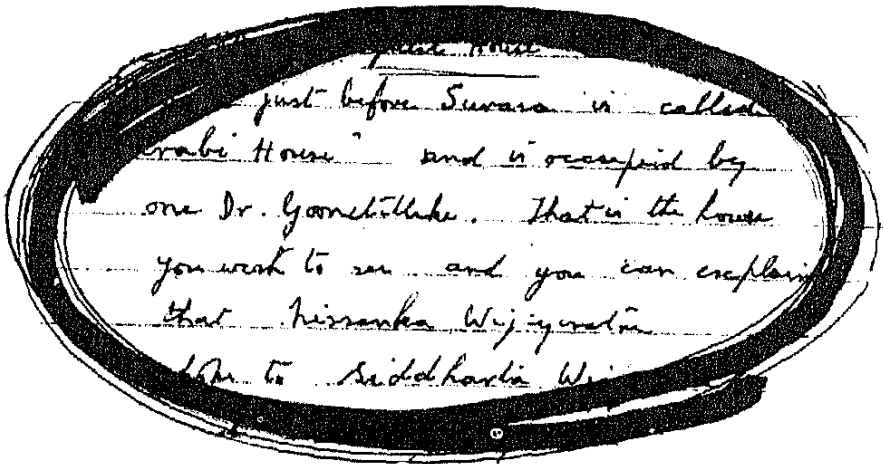 House
just before Suvasa is called
House" and is occupied by
one Dr. Goonetilleke. That is the house
you wish to see and you can explain
that Nissanka Wijeyeratne
to Siddharta Wij